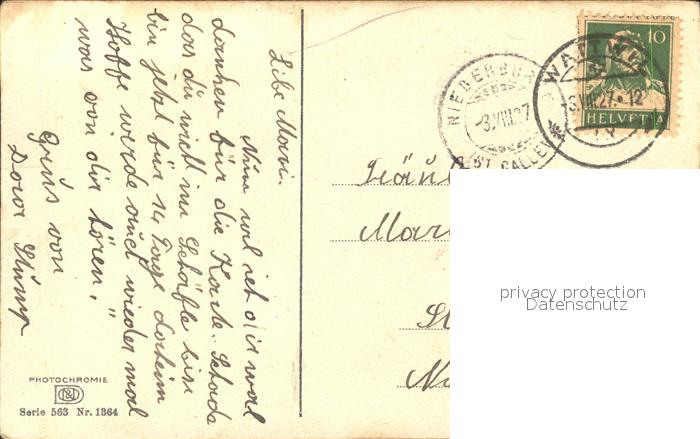 Libe Mari.
Nun wil ich dir wol
danken für die Karte. Schade
das du nicht im Schäfle bist
bin jetzt für 14 Tage daheim
Hoffe werde auch wieder mal
was von dir hören.
Grüs von
Dora Stump
PHOTOCHROMIE
Serie 563 Nr. 1364
NIEDERBÜR
-3.VIII.27
(ST. GALLEN)
WATTWIL
-3.VIII.27.-12
10
HELVETIA
Fräul
Mar
St
privacy protection
Datenschutz